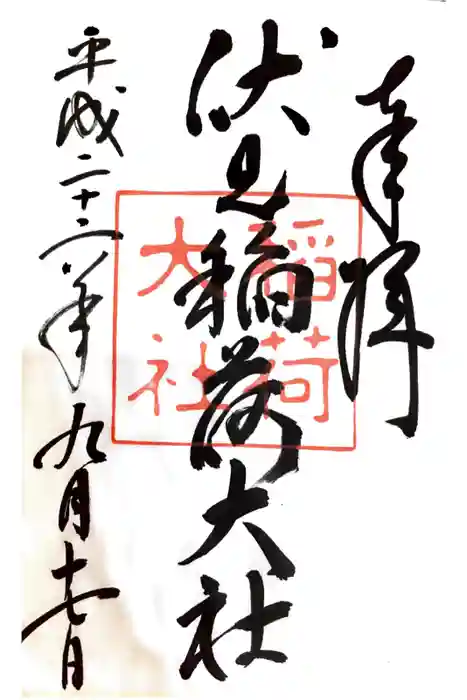 奉拝
伏見稲荷大社
稲荷
大社
平成二十三年九月十七日